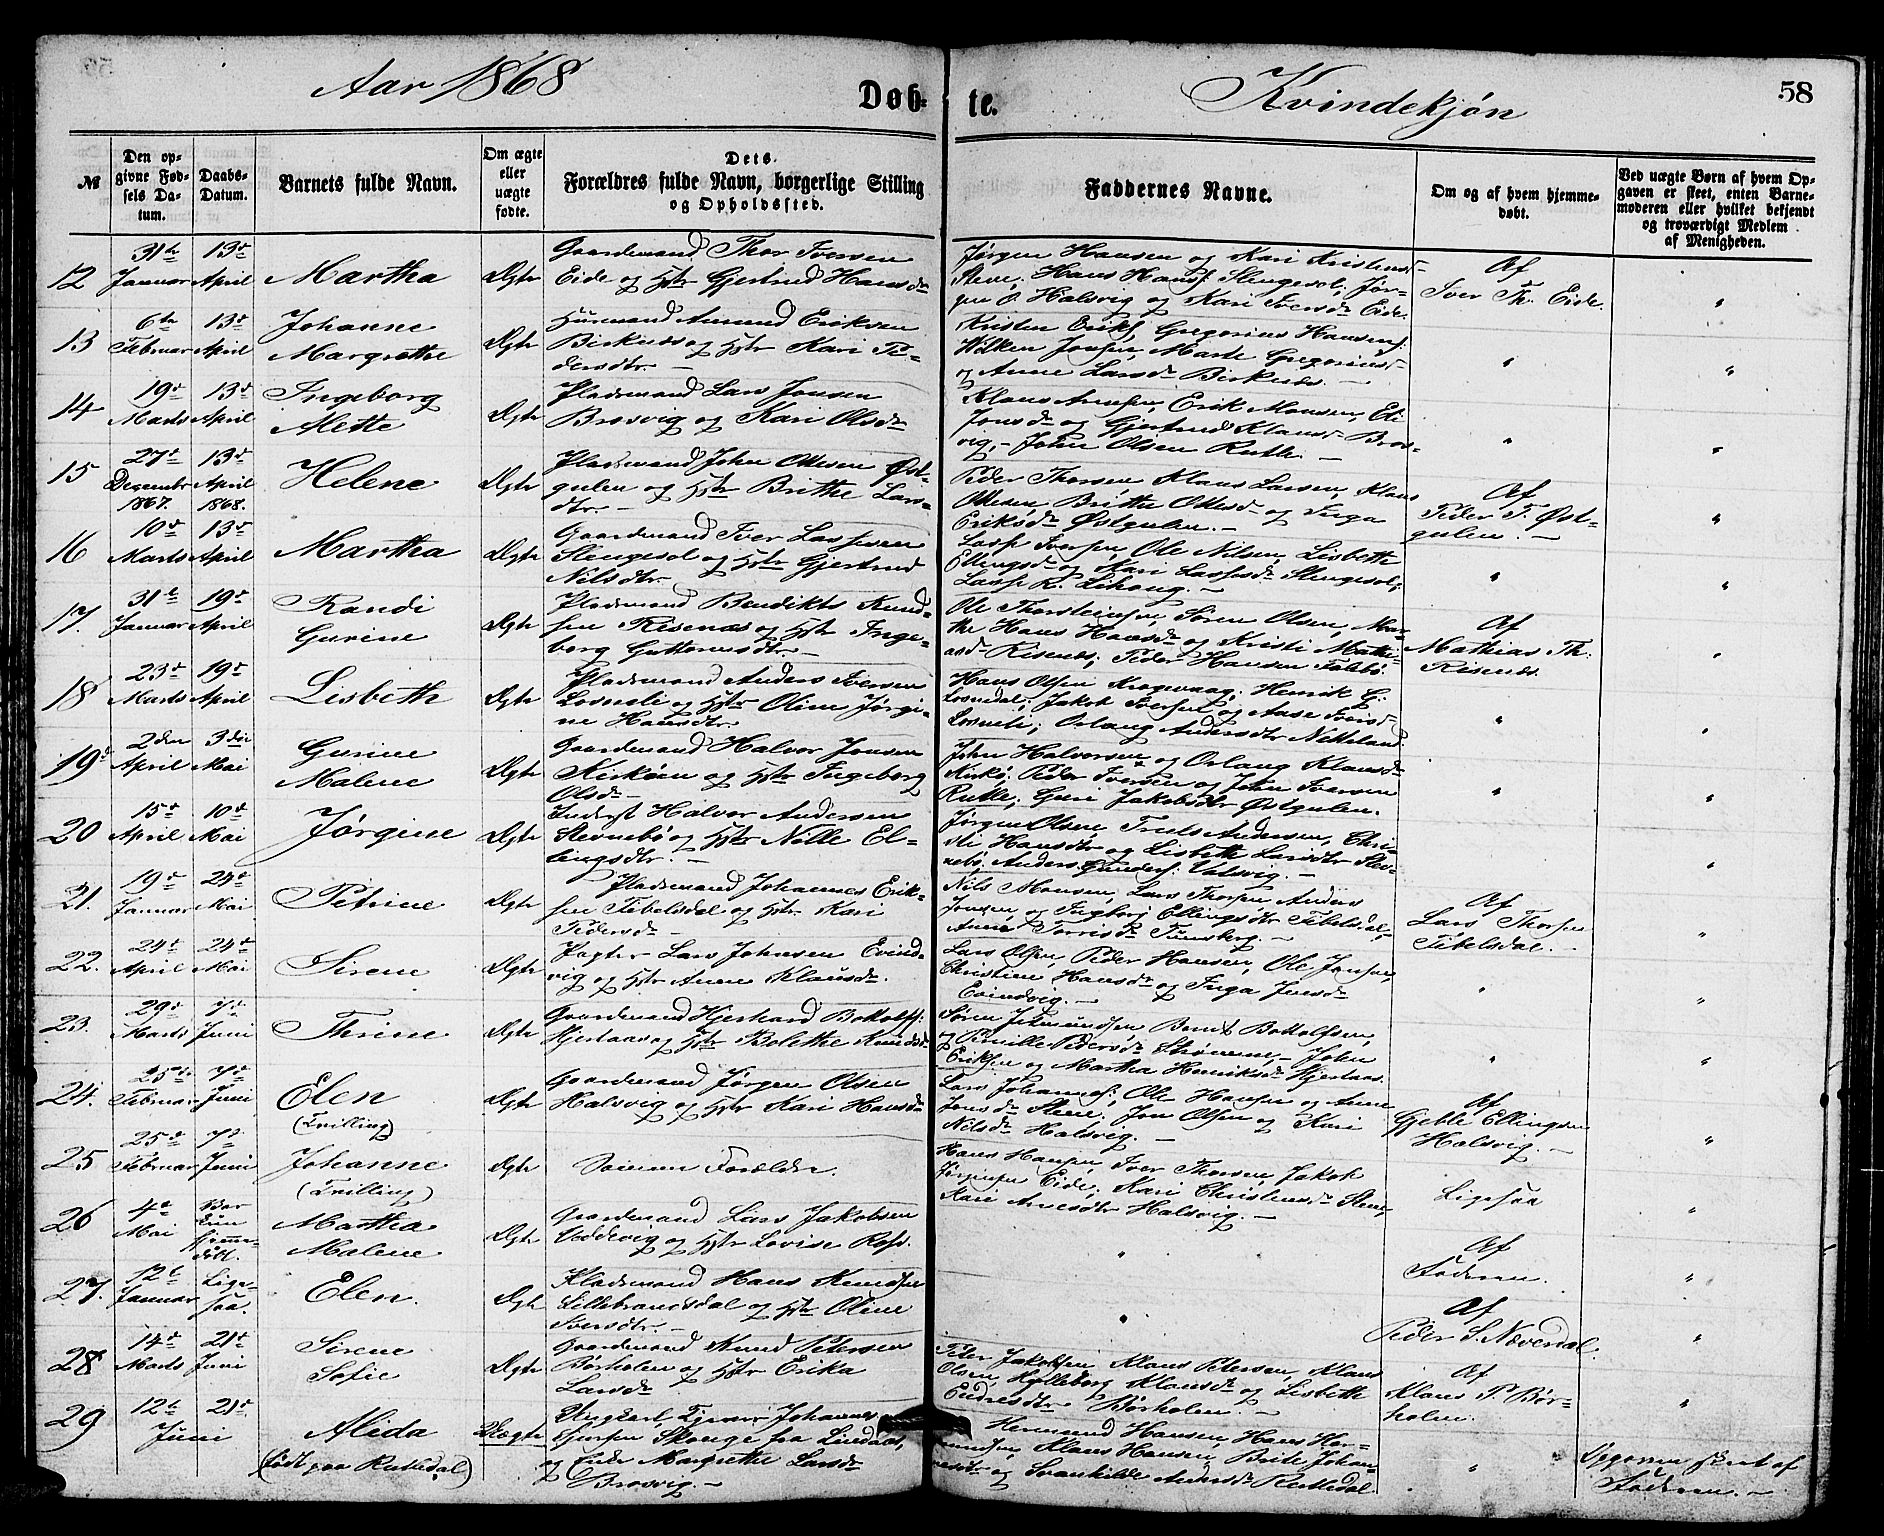 Aar 1868
Døb-
te.
Kvindekjøn
58
№
Den op-
givne Fød-
sels Da-
tum.
Daabs-
Datum.
Barnets fulde Navn.
Om ægte
eller
uægte
fødte.
Dets
Forældres fulde Navn, borgerlige Stilling
og Opholdssted.
Faddernes Navne.
Om og af hvem hjemme-
døbt.
Ved uægte Børn af hvem Op-
gaven er skeet, enten Barne-
moderen eller hvilket bekjendt
og troværdigt Medlem
af Menigheden.
12
31te Januar
13de April
Martha
Ægte
Gaardmand Thor Iversen
Eide og Hstr Gjertrud Hansdr
Jørgen Hansen og Kari Kristensd
Stene; Hans Hans. Slengesol; Jør-
gen O. Halsvig og Kari Iversdr Eide
Af
Iver Th. Eide.
"
13
6te Februar
13de April
Johanne
Margrethe
Ægte
Huusmand Amund Eriksen
Birknes og Hstr Kari Pe-
dersdtr. —
Kristen Eriks, Gregorius Hansen,
Wilken Jonsen, Marte Gregoriusd
og Anne Larsdr Birknes. —
"
"
14
19de Marts
13de April
Ingeborg
Mette
Ægte
Pladsmand Lars Jonsen
Brosvig og Kari Olsdr
Klaus Ansen, Erik Monsen, Eli
Jonsdr og Gjertrud Klausdr Bros-
vig, — John Olsen Rutle. —
"
"
15
27de Decembr 1867.
13de April 1868.
Helene
Ægte
Pladsmand John Ottesen Øst-
gulen og Hstr Brithe Lars-
dtr. —
Peder Thorsen, Klaus Larsen, Klaus
Ottesen, Brithe Ottesd og Inga
Eriksdr Østgulen. —
Af
Peder T. Øst-
gulen. —
"
16
10de Marts
13de April
Martha
Ægte
Gaardmand Iver Lassesen
Slengesol og Hstr Gjertrud
Nilsdtr.
Lasse Iversen, Ole Nilsen, Lisbette
Ellingsd og Kari Lassesdr Slengesol;
Lasse R. Lihoug. —
"
"
17.
31te Januar
19de April
Randi
Gurine
Ægte
Pladsmand Bendikt Knud-
sen Risenes og Hstr Inge-
borg Guttormsdtr. —
Ole Thorsteinsen, Søren Olsen, Mar-
the Hans Hansdr og Kristi Mathi-
asd Risenes; Peder Hansen Følsbø.
Af
Mathias Th.
Risenes.
"
18
23de Marts
19de April
Lisbeth
Ægte
Pladsmand Anders Iversen
Losneli og Hstr Oline Jørgi-
ne Hansdtr.
Hans Olsen Kragevaag; Henrik G.
Losnedal; Jakob Iversen og Aase Iversd
Losneli; Orlaug Andersdtr Nitteland
"
"
19
2den April
3die Mai
Gurine
Malene
Ægte
Gaardmand Halvor Jonsen
Kirkøen og Hstr Ingeborg
Olsdr —
John Halvorsen og Orlaug Klausdr
Kirkø; Peder Iversen og John Iversen
Rutle; Guri Jakobsdtr Østgulen.
"
"
20
15de April
10de Mai
Jørgine
Ægte
Inderst Halvor Andersen
Stevnebø og Hstr Nille El-
lingsdtr. —
Jørgen Olsen, Truls Andersen, Chri-
sti Hansdtr og Lisbeth Larsdtr Stev-
nebø; Anders Gunders. Vatsvig. —
"
"
21.
19de Januar
24de Mai
Petrine
Ægte
Pladsmand Johannes Erik-
sen Tibelsdal og Hstr Kari
Pedersdr —
Nils Monsen, Lars Thorsen, Anders
Jonsen og Ingborg Ellingsdtr Tibelsdal;
Anne Torrisdr Tunsberg. —
Af
Lars Thorsen
Tibelsdal. —
"
22.
24de April
24de Mai
Sirene
Ægte
Pagter Lars Johnsen Evind-
vig og Hstr Anne Klausdr.
Lars Olsen, Peder Hansen, Ole Jonsen,
Christine Hansdr og Inga Jensdr
Evindvig. —
"
"
23.
29de Marts
7de Juni
Thrine
Ægte
Gaardmand Gjerhard Bottolfs.
Hjertaas og Hstr Bolethe Knudsdr
Søren Johnsen, Bernt Bottolfsen,
og Pernille Pedersdr Strømme, — John
Eriksen og Martha Henriksdr Hjertaas.
"
"
24.
25de Februar
7de Juni
Elen
(Tvilling)
Ægte
Gaardmand Jørgen Olsen
Halsvig og Hstr Kari Hansdr
Lars Johannes. Ole Hansen og Anne
Jonsdr Stene; Jon Olsen og Kari
Nilsdr Halsvig. —
Af
Gjeble Ellingsen
Halsvig. —
"
25
25de Februar
7de Juni
Johanne
(Tvilling)
Ægte
Samme Forældre.
Hans Hansen, Iver Thorsen, Jakob
Jørgensen Eide; Kari Christensdr Stene;
Kari Arnesdtr Halsvig. —
Ligesaa
"
26
4de Mai
Bar
kun
hjemme-
døbt.
Martha
Malene
Ægte
Gaardmand Lars Jakobsen
Veddevig og Hstr Lovise Rasm.
"
Af
Føderen.
"
27.
12te Januar
Lige-
saa.
Elen.
Ægte
Pladsmand Hans Knudsen
Lillebrandsdal og Hstr Oline
Iversdtr. —
"
Af
Peder S. Nævedal.
"
28
14de Marts
21de Juni
Sirene
Sofie
Ægte
Gaardmand Knud Petersen
Børholen og Hstr Erika
Larsdr
Peter Jakobsen, Klaus Petersen, Klaus
Olsen, Hylleborg Klausdr og Lisbette
Endresdtr Børholen. —
Af
Klaus P. Bør-
holen.
"
29
12te Juni
21de
Alida
(født paa Rutledal)
Uægte
Ungkarl, Tjener Johannes
Sjursen Skouge fra Lindaas,
og Enke Margrethe Larsdr
Brosvig. —
Hermund Hansen, Hans Her-
mundsen, Klaus Hansen, Brite Johan-
nesdtr og Svanhilde Andersdr Rutledal
"
Opgaven skeet af
Føderen. —